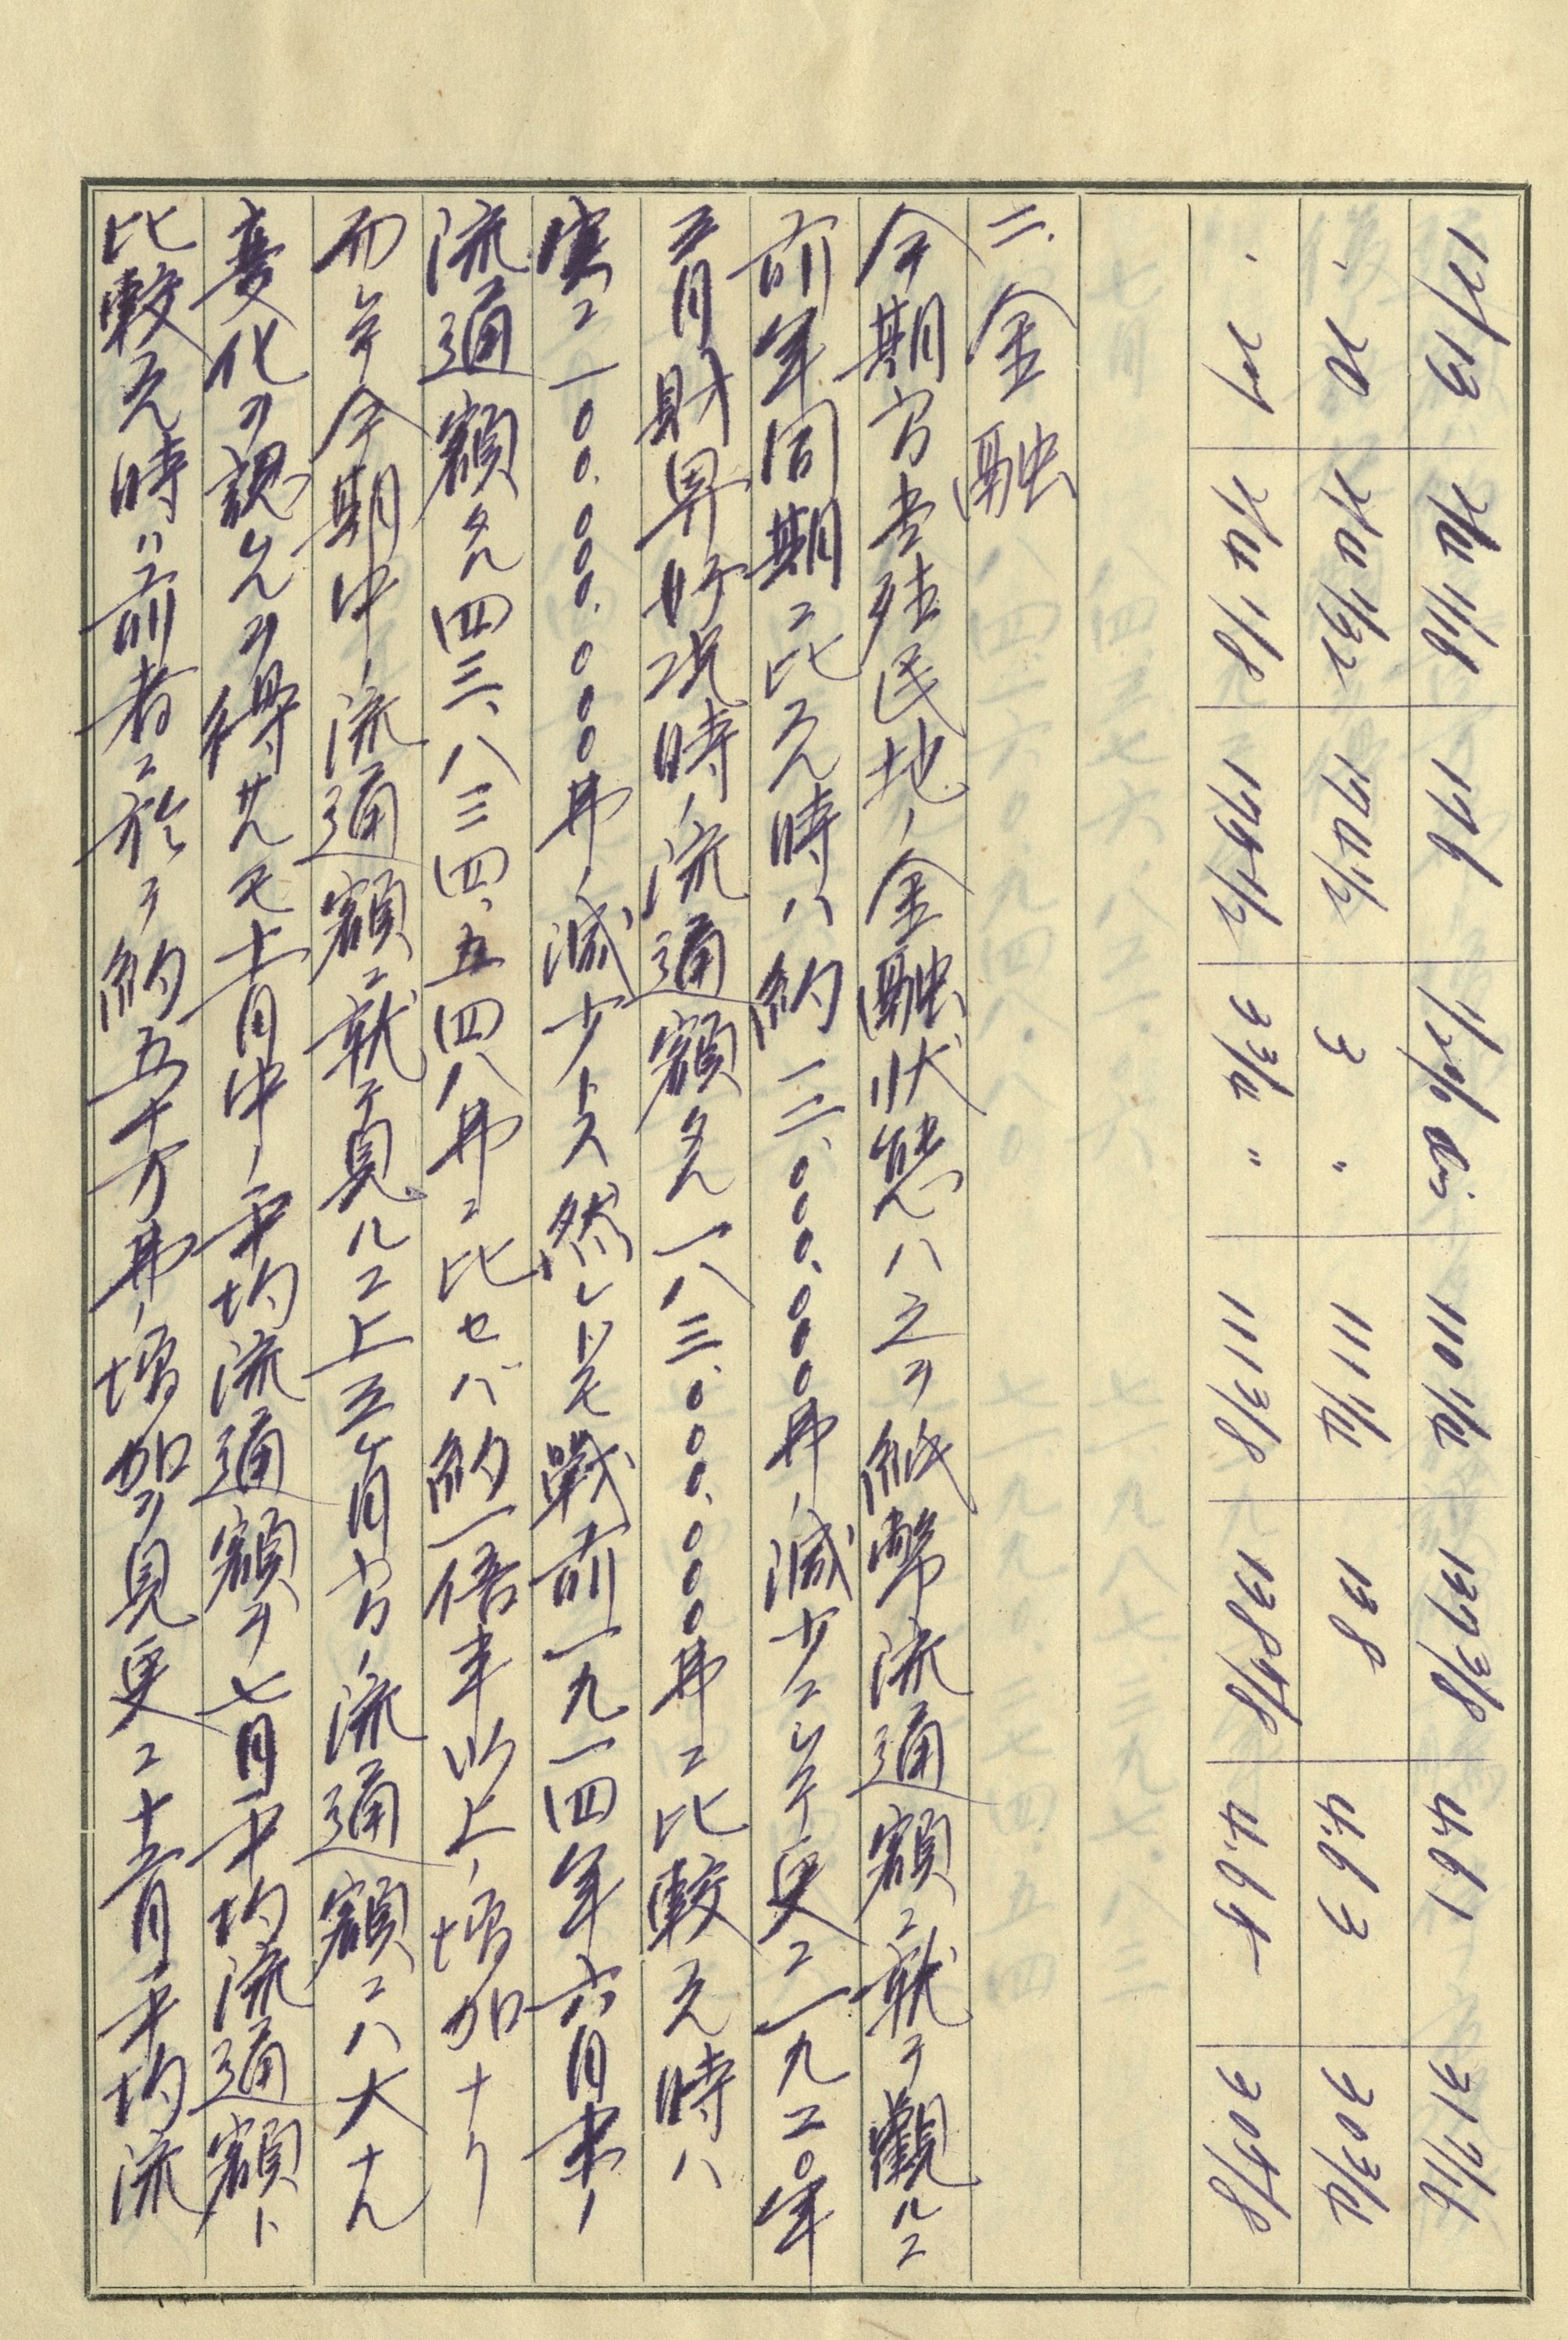 17/13 2/4 1/16 176 1/2% dis 110 1/4 137 3/8 4.61 31 7/16
、 20 2/4 1/32 174 1/2 3 〃 111 1/4 138 4.63 30 3/4
、 27 2/4 1/8 175 1/2 3 3/4 〃 111 3/8 138 5/8 4.65 30 5/8
二、金融
今期間当殖民地ノ金融状態ハ之ヲ紙幣流通額ニ就テ觀ルニ
前年同期ニ比スル時ハ約一二、〇〇〇、〇〇〇弗ノ減少ニシテ更ニ一九二〇年
五月財界好況時ノ流通額タル一八三、〇〇〇、〇〇〇弗ニ比較スル時ハ
実ニ一〇〇、〇〇〇、〇〇〇弗ノ減少トス然レドモ戦前一九一四年六月末ノ
流通額タル四三、八三四、五四八弗ニ比セバ約一倍半以上ノ増加ナリ
而シテ今期中ノ流通額ニ就テ見ルニ上五ヶ月間ノ流通額ニハ大ナル
変化ヲ認ムルヲ得サルモ十一月中ノ平均流通額ヲ七月平均流通額ト
比較スル時ハ前者ニ於テ約五十万弗ノ増加ヲ見更ニ十二月平均流